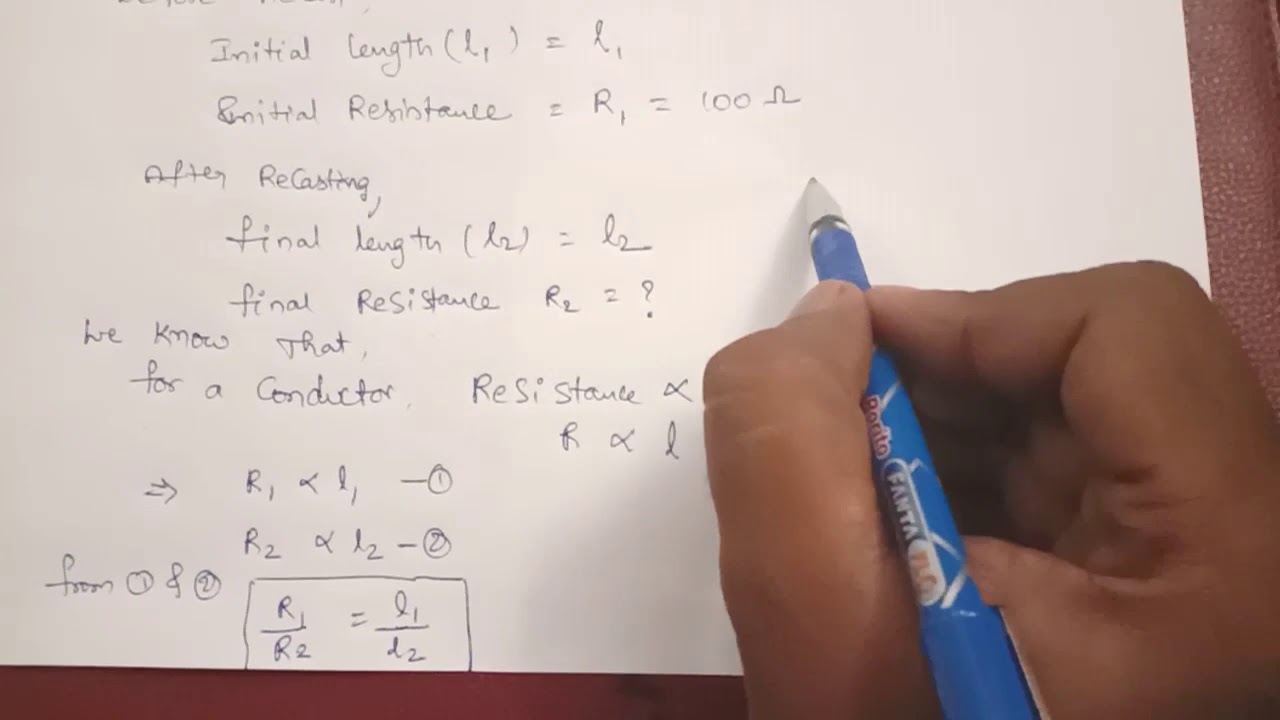 Initial length (l₁) = l₁
Initial Resistance = R₁ = 100 Ω
After Recasting,
final length (l₂) = l₂
final Resistance R₂ = ?
We know that,
for a Conductor, Resistance ∝
R ∝ l
⇒ R₁ ∝ l₁ — ①
R₂ ∝ l₂ — ②
from ① & ②
R₁/R₂ = l₁/l₂
FANTA FLO